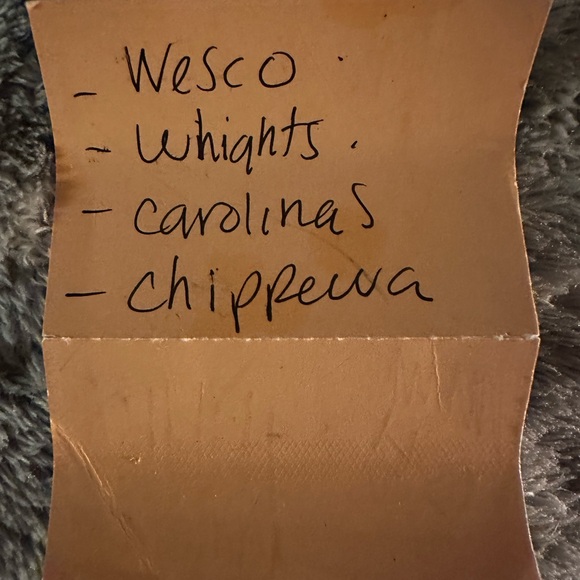 - Wesco
- Whights
- Carolinas
- Chippewa